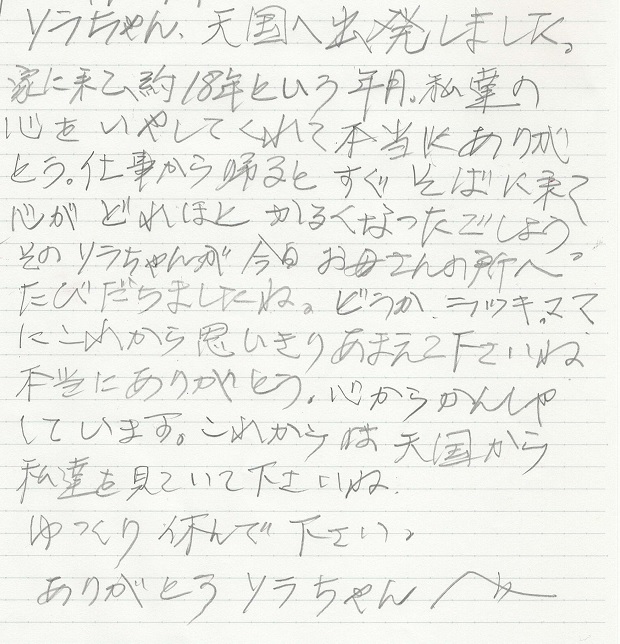 ソラちゃん、天国へ出発しました。
家に来て、約18年という年月。私達の
心をいやしてくれて本当にありが
とう。仕事から帰るとすぐそばに来て
心がどれほどかるくなったでしょう。
そのソラちゃんが今日お母さんの所へ
たびだちましたね。どうか、ラッキーママ
にこれから思いきりあまえて下さいね
本当にありがとう。心からかんしゃ
しています。これからは天国から
私達を見ていて下さいね。
ゆっくり休んで下さい。
ありがとうソラちゃんへ